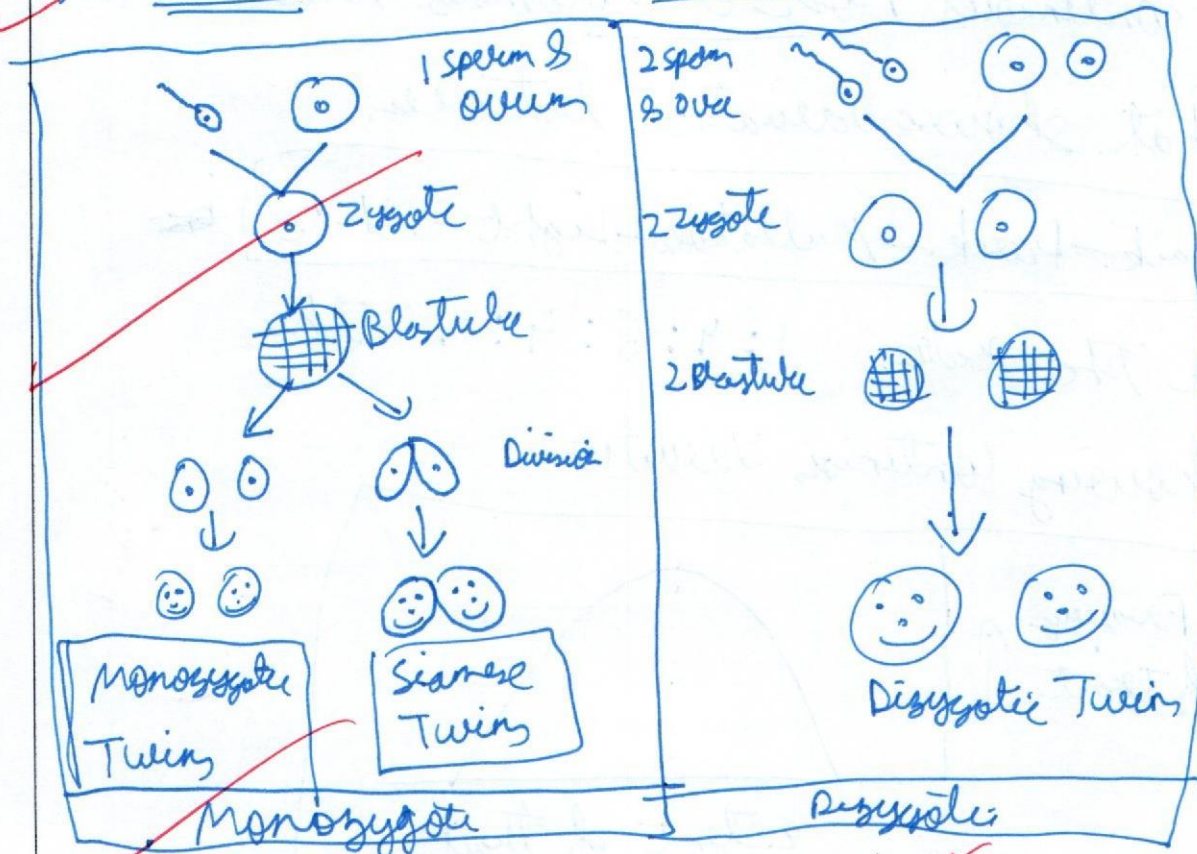 1 Sperm &
Ovum
Zygote
Blastula
Division
Monozygotic
Twins
Siamese
Twins
Monozygote
2 sperm
& Ova
2 Zygote
2 Blastula
Dizygotic Twins
Dizygotic